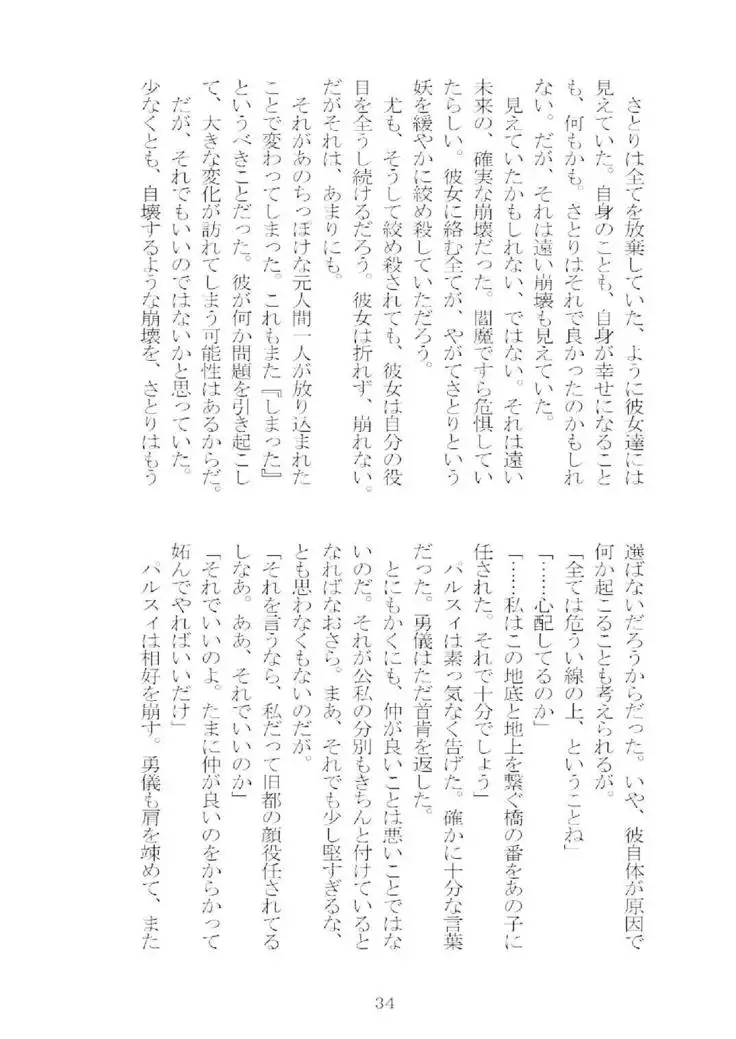 さとりは全てを放棄していた、ように彼女達には
見えていた。自身のことも、自身が幸せになること
も、何もかも。さとりはそれで良かったのかもしれ
ない。だが、それは遠い崩壊も見えていた。
　見えていたかもしれない、ではない。それは遠い
未来の、確実な崩壊だった。閻魔ですら危惧してい
たらしい。彼女に絡む全てが、やがてさとりという
妖を緩やかに絞め殺していただろう。
　尤も、そうして絞め殺されても、彼女は自分の役
目を全うし続けるだろう。彼女は折れず、崩れない。
だがそれは、あまりにも。
　それがあのちっぽけな元人間一人が放り込まれた
ことで変わってしまった。これもまた『しまった』
というべきことだった。彼が何か問題を引き起こし
て、大きな変化が訪れてしまう可能性はあるからだ。
　だが、それでもいいのではないかと思っていた。
少なくとも、自壊するような崩壊を、さとりはもう
選ばないだろうからだった。いや、彼自体が原因で
何か起こることも考えられるが。
「全ては危うい線の上、ということね」
「……心配してるのか」
「……私はこの地底と地上を繋ぐ橋の番をあの子に
任された。それで十分でしょう」
　パルスィは素っ気なく告げた。確かに十分な言葉
だった。勇儀はただ首肯を返した。
　とにもかくにも、仲が良いことは悪いことではな
いのだ。それが公私の分別もきちんと付けていると
なればなおさら。まあ、それでも少し堅すぎるな、
とも思わなくもないのだが。
「それを言うなら、私だって旧都の顔役任されてる
しなあ。ああ、それでいいのか」
「それでいいのよ。たまに仲が良いのをからかって
妬んでやればいいだけ」
　パルスィは相好を崩す。勇儀も肩を竦めて、また
34